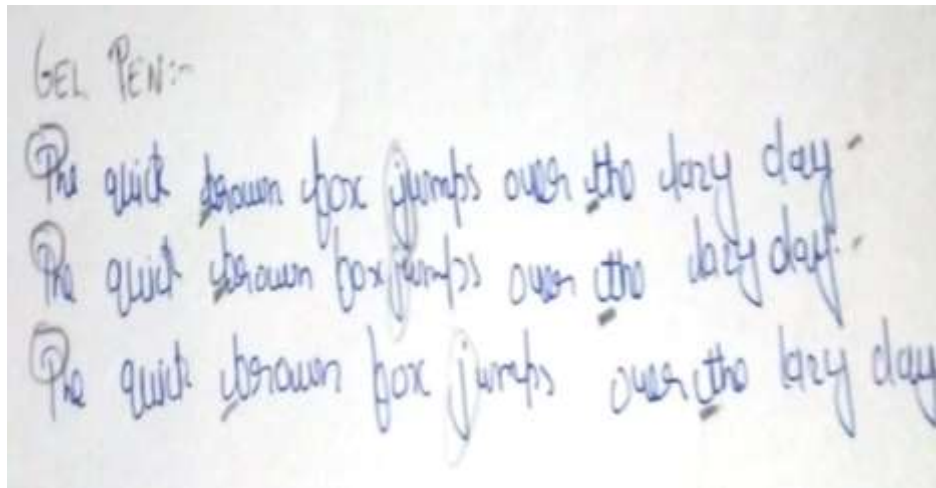 GEL PEN:-
The quick brown fox jumps over the lazy day.
The quick brown fox jumps over the lazy day.
The quick brown fox jumps over the lazy day